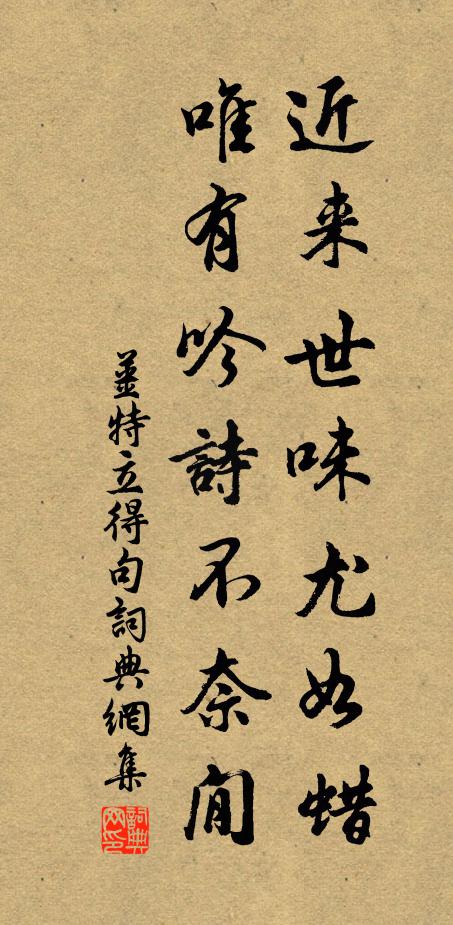 近来世味尤如蜡
唯有吟詩不奈閒
姜特立得句詞典網集
詞典網印